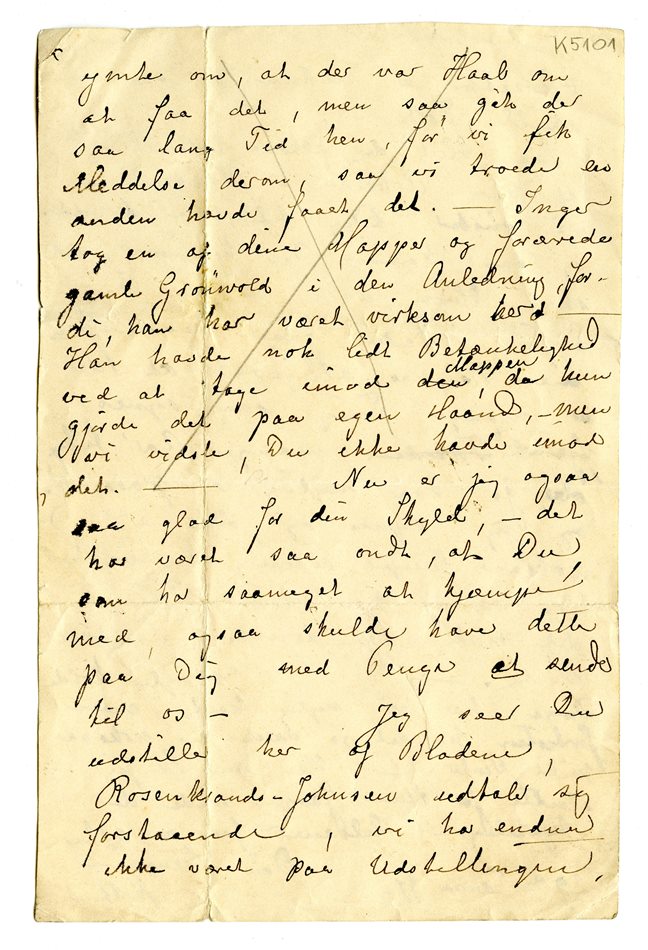 K5101
ymte om, at der var Haab om
at faa det, men saa gik der
saa lang Tid hen, før vi fik
Meddelse derom, saa vi troede en
anden havde faaet det. — Inger
tog en af dine Mapper og forærede
gamle Grønvold i den Anledning, for-
di, han har været virksom heri —
Han havde nok lidt Betænkelighed
ved at tage imod den, Mappen da hun
gjorde det paa egen Haand, – men
vi vidste, Du ikke havde imod
det. — Nu er jeg ogsaa
saa glad for din Skyld, – det
har været saa ondt, at Du
som har saameget at kjæmpe
med, ogsaa skulde have dette
paa Dig med Penge at sende
til os – Jeg seer Du
udstiller her af Bladene,
Rosenkrands-Johnsen udtaler sig
forstaaende, vi har endnu
ikke været paa Udstillingen,